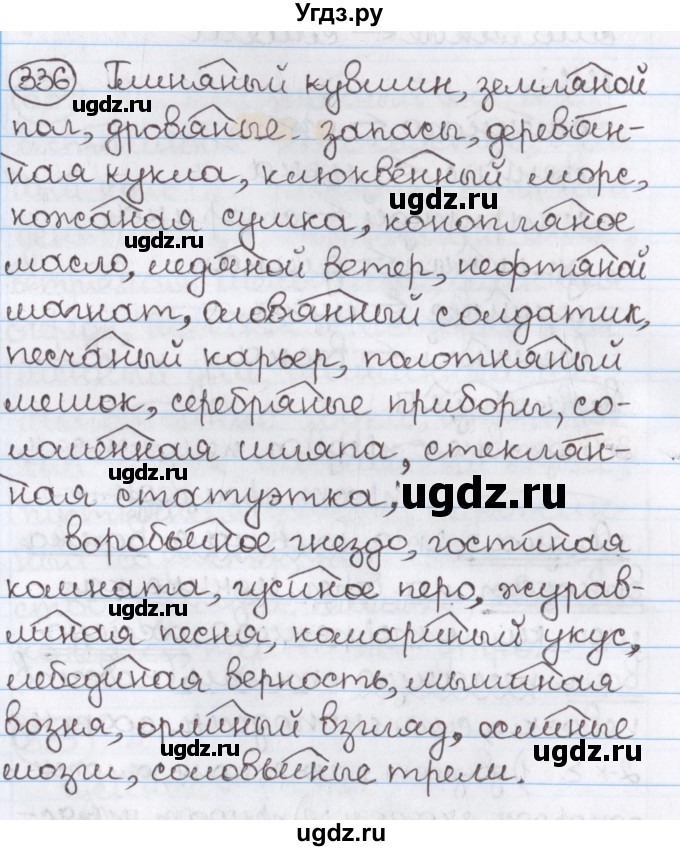 Угдз.ру
336 Глиняный кувшин, земляной
ugdz.ru ugdz.ru
пол, дровяные запасы, деревян-
ная кукла, клюквенный морс,
ugdz.ru
кожаная сумка, конопляное
ugdz.ru
масло, ледяной ветер, нефтяной
магнат, оловянный солдатик,
ugdz.ru
песчаный карьер, полотняный
мешок, серебряные приборы, со-
ломенная шляпа, стеклян-
ugdz.ru
ная статуэтка;
ugdz.ru
воробьиное гнездо, гостиная
ugdz.ru
комната, гусиное перо, журав-
ugdz.ru
линая песня, комариный укус,
ugdz.ru
лебединая верность, мышиная
возня, орлиный взгляд, ослиные
ugdz.ru ugdz.ru
мозги, соловьиные трели.
ugdz.ru